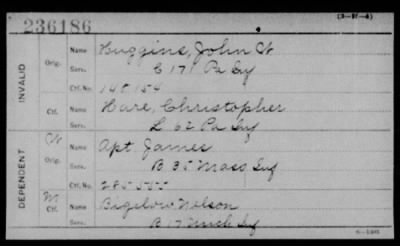 (3-1F-4)
236186
INVALID
Orig. Name Huggins, John W
Serv. C 171 Pa Inf
Ctf. No. 148154
Ctf. Name Hare, Christopher
Serv. L 62 Pa Inf
DEPENDENT
W
Orig. Name Apt James
Serv. B 35 Mass Inf
Ctf. No. 285555
M
Ctf. Name Bigelow Nelson
B 17 Mich Inf